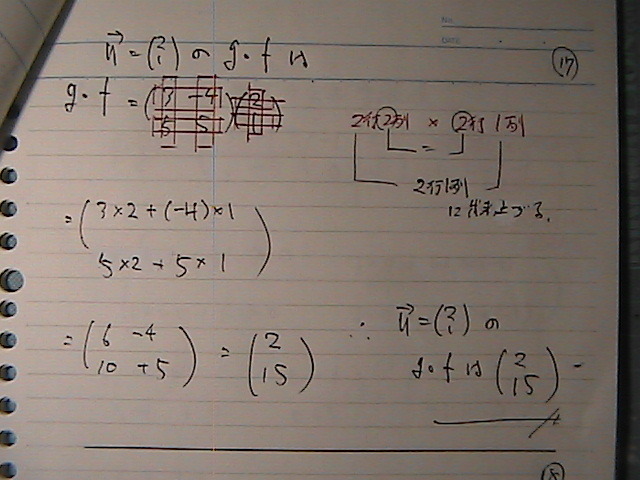 No.
DATE
u⃗ = (2 1) の g・f は
⑰
g・f = (3 -4 5 5)(2 1)
2行2列 × 2行1列
=
2行1列
= (3×2+(-4)×1
5×2+5×1)
= (6 -4 10 +5) = (2 15)
∴ u⃗ = (2 1) の
g・f は (2 15)
⑱